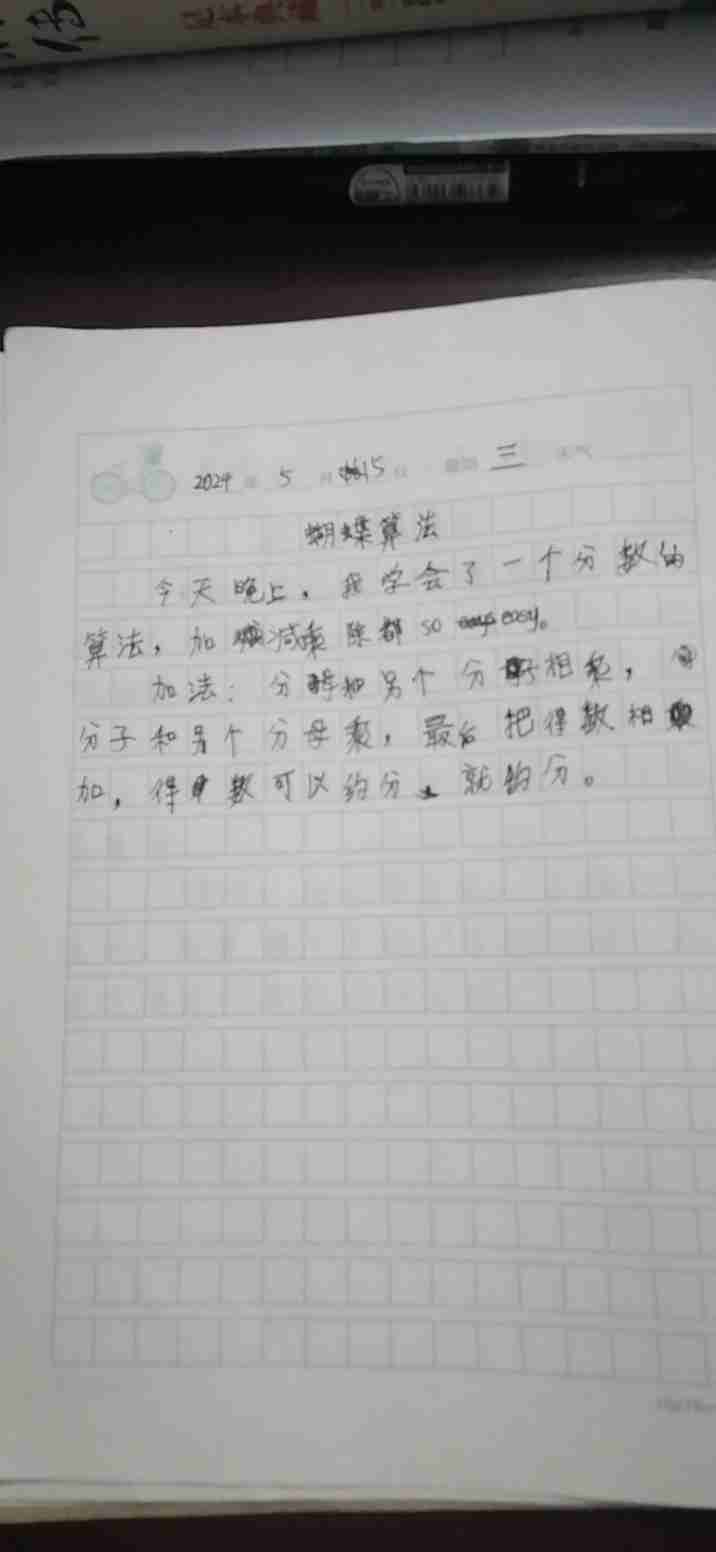 2024 年 5 月 15 日 星期 三 天气
蝴蝶算法
今天晚上，我学会了一个分数的
算法，加减乘除都so easy。
加法：分母和另个分子相乘，
分子和另个分母乘，最后把得数相
加，得数可以约分，就约分。